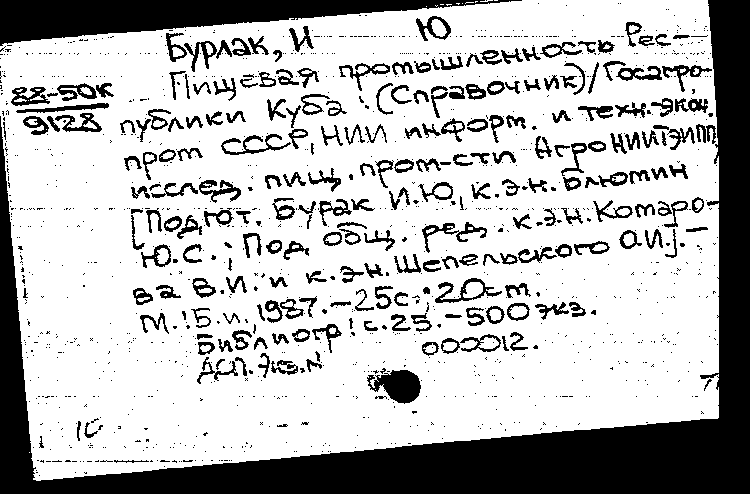 Бурлак, И Ю
88-50к
9128
Пищевая промышленность Рес-
публики Куба: (Справочник)/Госагро-
пром СССР, НИИ информ. и техн.-экон.
исслед. пищ. пром-сти АгроНИИТЭИПП
[Подгот. Бурак И.Ю., к.э.н. Блюмин
Ю.С.; Под общ. ред. к.э.н. Комаро-
ва В.И. и к.э-н. Шепельского О.И.]. -
М.: Б.и., 1987. - 25с.; 20см.
Библиогр: с.25. - 500 экз.
ДСП. Экз. N 000012.